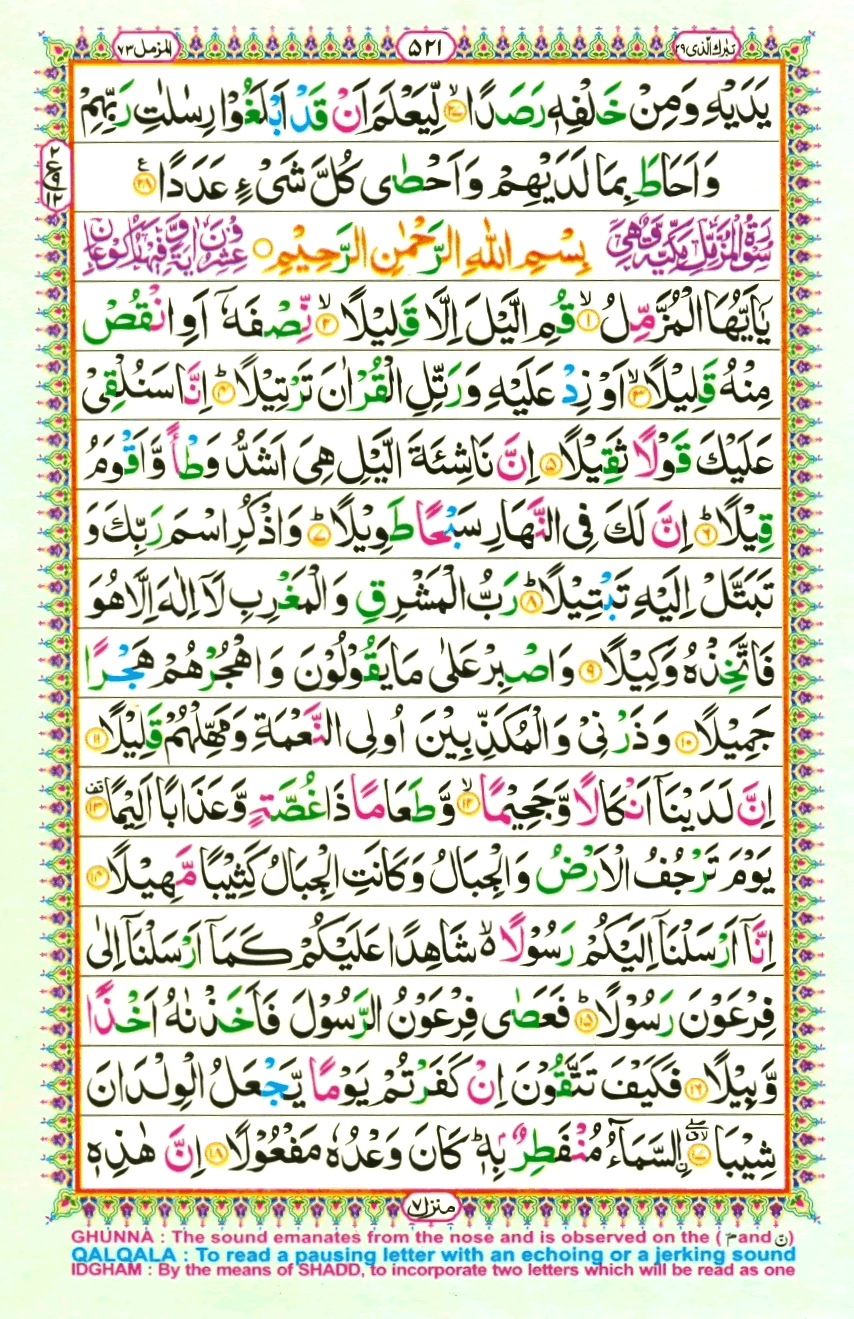 تبٰرك الّذی ٢٩
٥٢١
المزمل ٧٣
یَدَیۡهِ وَمِنۡ خَلۡفِهٖ رَصَدًا ۙ﴿٢٧﴾ لِّیَعۡلَمَ اَنۡ قَدۡ اَبۡلَغُوۡا رِسٰلٰتِ رَبِّهِمۡ
وَاَحَاطَ بِمَا لَدَیۡهِمۡ وَاَحۡصٰی كُلَّ شَیۡءٍ عَدَدًا ﴿٢٨﴾ ع
٢
ع
١٢
سُوۡرَةُ الۡمُزَّمِّلِ مَكِّیَّةٌ وَّهِیَ
بِسۡمِ اللهِ الرَّحۡمٰنِ الرَّحِیۡمِ
عِشۡرُوۡنَ اٰیَةً وَّفِیۡهَا رُكُوۡعَانِ
یٰۤاَیُّهَا الۡمُزَّمِّلُ ۙ﴿١﴾ قُمِ الَّیۡلَ اِلَّا قَلِیۡلًا ۙ﴿٢﴾ نِّصۡفَهٗۤ اَوِ انۡقُصۡ
مِنۡهُ قَلِیۡلًا ۙ﴿٣﴾ اَوۡ زِدۡ عَلَیۡهِ وَرَتِّلِ الۡقُرۡاٰنَ تَرۡتِیۡلًا ؕ﴿٤﴾ اِنَّا سَنُلۡقِیۡ
عَلَیۡكَ قَوۡلًا ثَقِیۡلًا ﴿٥﴾ اِنَّ نَاشِئَةَ الَّیۡلِ هِیَ اَشَدُّ وَطۡاً وَّاَقۡوَمُ
قِیۡلًا ؕ﴿٦﴾ اِنَّ لَكَ فِی النَّهَارِ سَبۡحًا طَوِیۡلًا ؕ﴿٧﴾ وَاذۡكُرِ اسۡمَ رَبِّكَ وَ
تَبَتَّلۡ اِلَیۡهِ تَبۡتِیۡلًا ؕ﴿٨﴾ رَبُّ الۡمَشۡرِقِ وَالۡمَغۡرِبِ لَاۤ اِلٰهَ اِلَّا هُوَ
فَاتَّخِذۡهُ وَكِیۡلًا ﴿٩﴾ وَاصۡبِرۡ عَلٰی مَا یَقُوۡلُوۡنَ وَاهۡجُرۡهُمۡ هَجۡرًا
جَمِیۡلًا ﴿١٠﴾ وَذَرۡنِیۡ وَالۡمُكَذِّبِیۡنَ اُولِی النَّعۡمَةِ وَمَهِّلۡهُمۡ قَلِیۡلًا ﴿١١﴾
اِنَّ لَدَیۡنَاۤ اَنۡكَالًا وَّجَحِیۡمًا ۙ﴿١٢﴾ وَّطَعَامًا ذَا غُصَّةٍ وَّعَذَابًا اَلِیۡمًا ﴿١٣﴾ قف
یَوۡمَ تَرۡجُفُ الۡاَرۡضُ وَالۡجِبَالُ وَكَانَتِ الۡجِبَالُ كَثِیۡبًا مَّهِیۡلًا ﴿١٤﴾
اِنَّاۤ اَرۡسَلۡنَاۤ اِلَیۡكُمۡ رَسُوۡلًا ۙ۬ شَاهِدًا عَلَیۡكُمۡ كَمَاۤ اَرۡسَلۡنَاۤ اِلٰی
فِرۡعَوۡنَ رَسُوۡلًا ؕ﴿١٥﴾ فَعَصٰی فِرۡعَوۡنُ الرَّسُوۡلَ فَاَخَذۡنٰهُ اَخۡذًا
وَّبِیۡلًا ﴿١٦﴾ فَكَیۡفَ تَتَّقُوۡنَ اِنۡ كَفَرۡتُمۡ یَوۡمًا یَّجۡعَلُ الۡوِلۡدَانَ
شِیۡبَا ﴿١٧﴾ اۨلسَّمَآءُ مُنۡفَطِرٌۢ بِهٖ ؕ كَانَ وَعۡدُهٗ مَفۡعُوۡلًا ﴿١٨﴾ اِنَّ هٰذِهٖ
منزل ٧
GHUNNA : The sound emanates from the nose and is observed on the ( مّ and نّ )
QALQALA : To read a pausing letter with an echoing or a jerking sound
IDGHAM : By the means of SHADD, to incorporate two letters which will be read as one